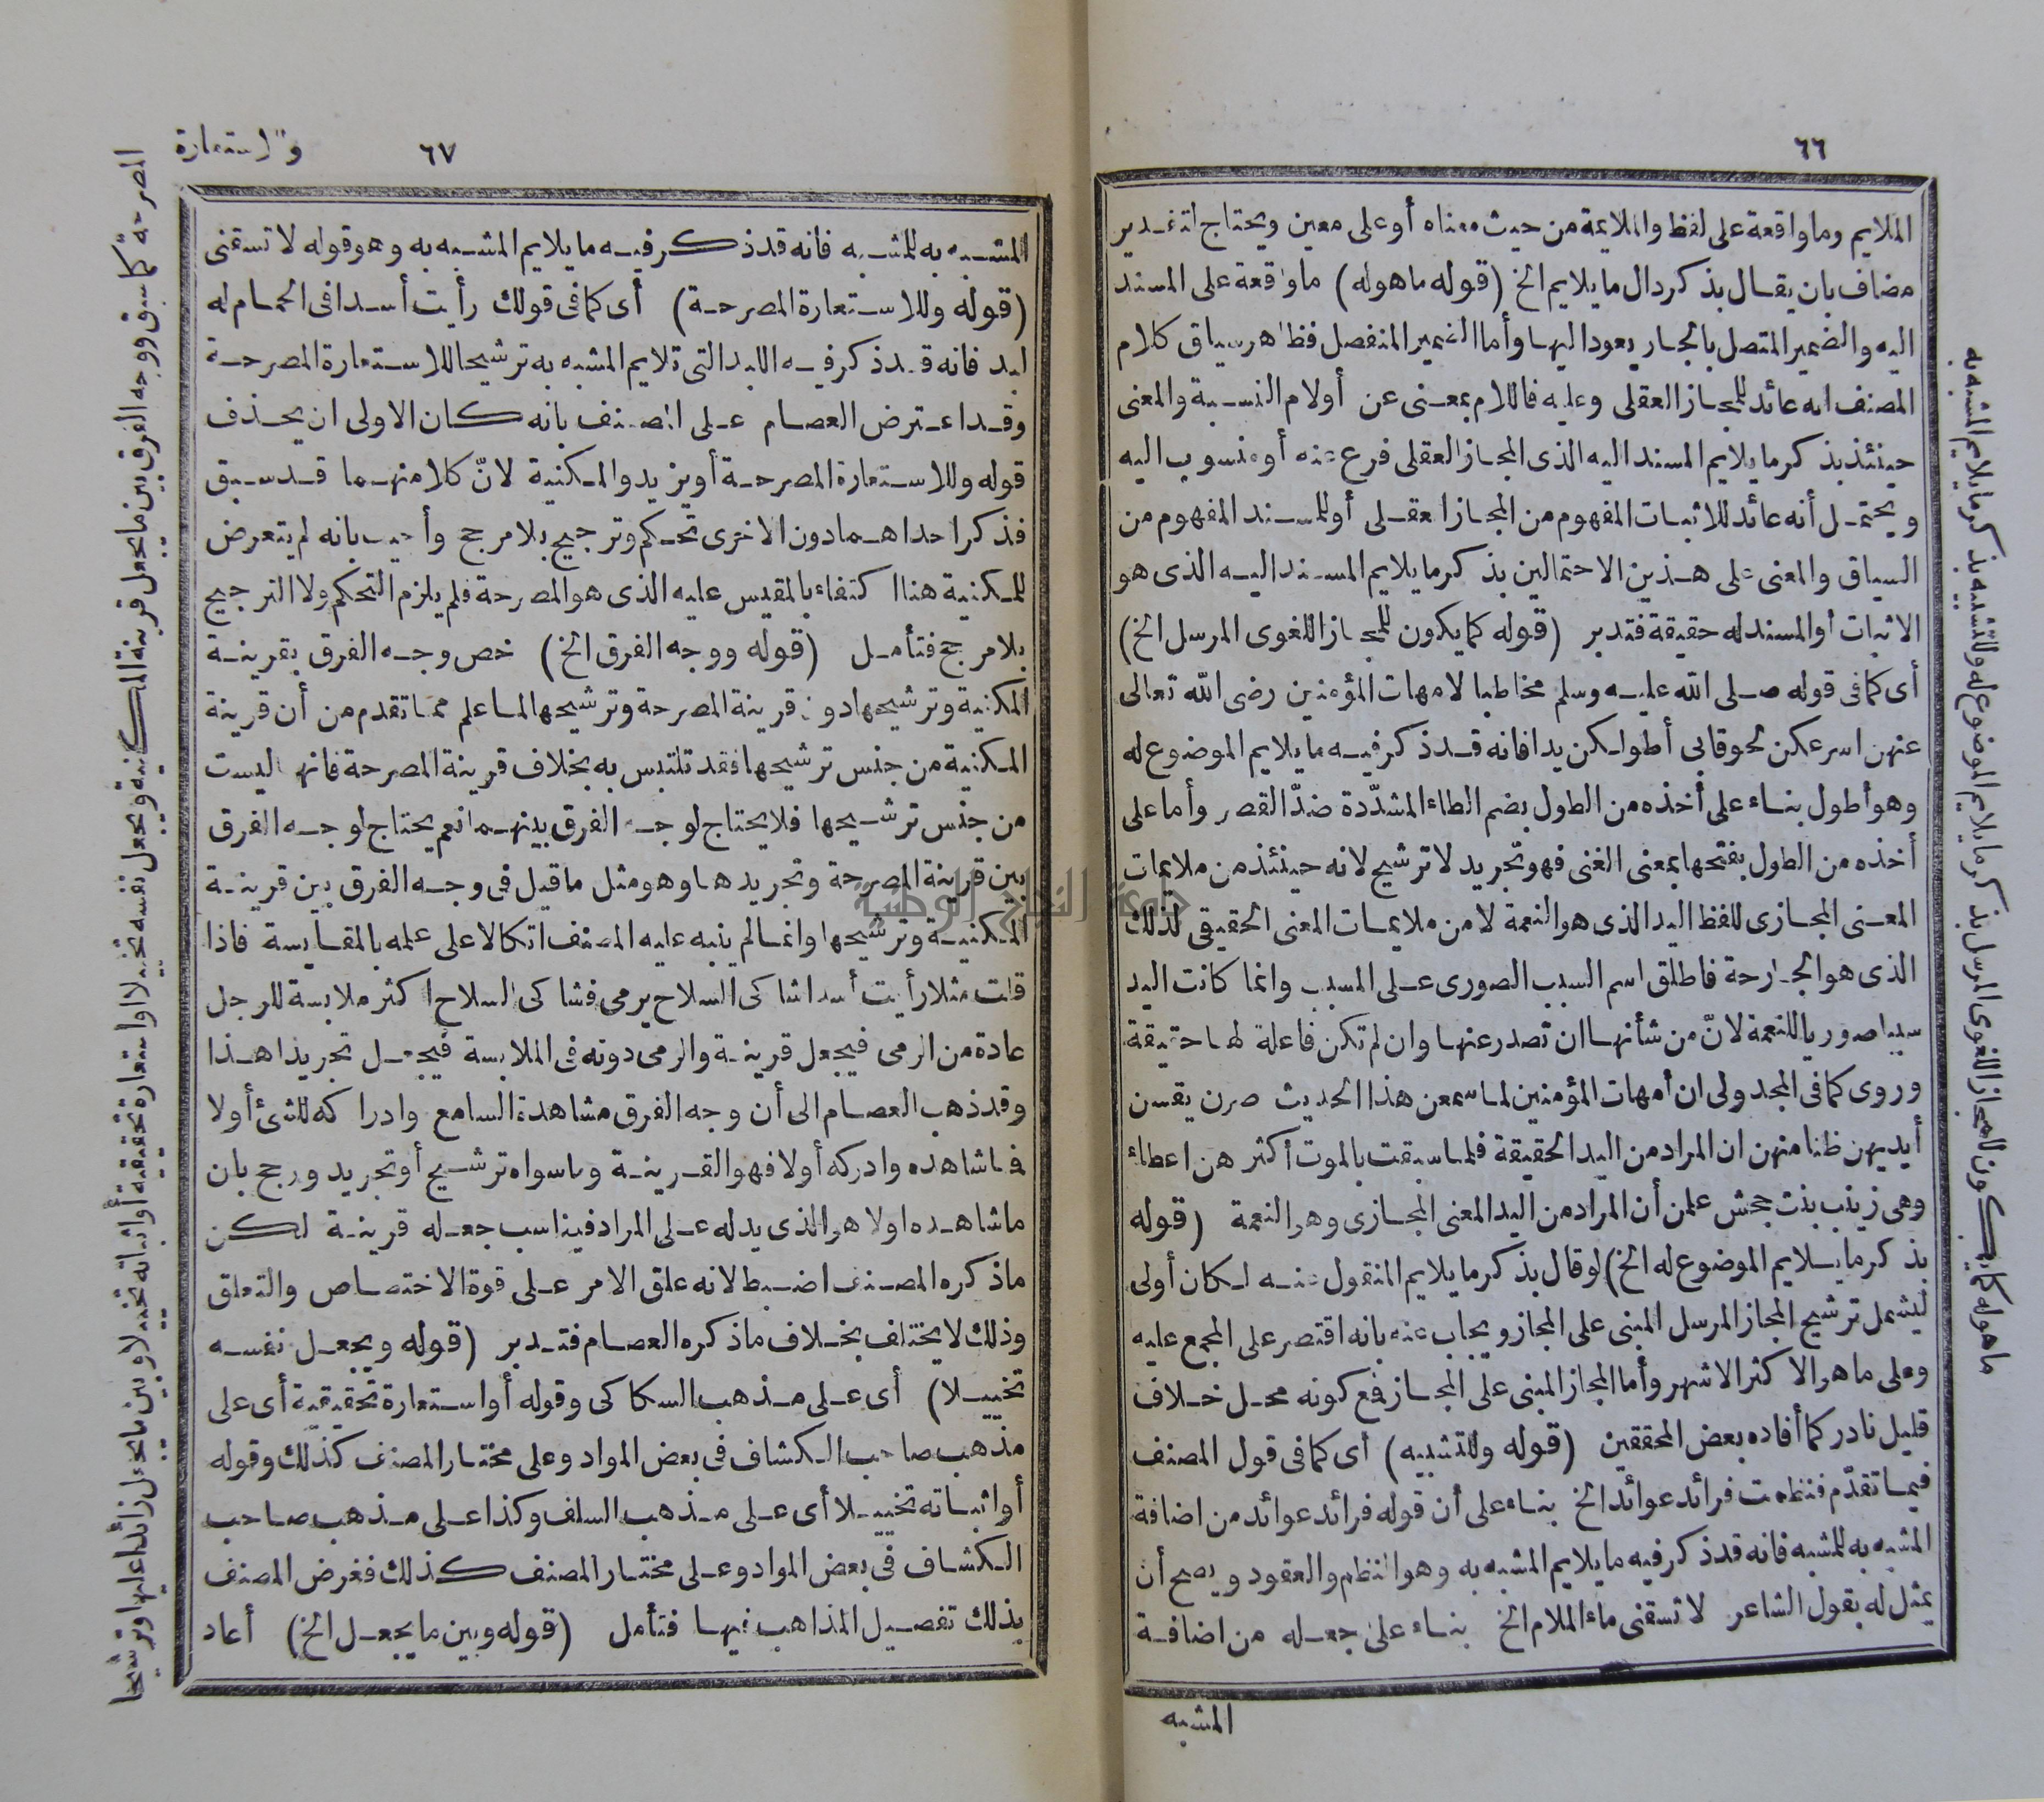 ٦٦
الملايم وما واقعة على لفظ والملايمة من حيث معناه أو على معين ويحتاج لتقدير
مضاف بان يقال بذكر دال ما يلايم الخ (قوله ما هوله) ما واقعة على المسند
اليه والضمير المتصل بالجار يعود اليها وأما الضمير المنفصل فظاهر سياق كلام
المصنف انه عائد للمجاز العقلى وعليه فاللام بمعنى عن أولام النسبة والمعنى
حينئذ بذكر ما يلايم المسند اليه الذى المجاز العقلى فرع عنه أو منسوب اليه
ويحتمل أنه عائد للاثبات المفهوم من المجاز العقلى أو للمسند المفهوم من
السياق والمعنى على هذين الاحتمالين بذكر ما يلايم المسند اليه الذى هو
الاثبات أو المسند له حقيقة فتدبر (قوله كما يكون للمجاز اللغوى المرسل الخ)
أى كما فى قوله صلى الله عليه وسلم مخاطبا لامهات المؤمنين رضى الله تعالى
عنهن اسرعكن لحوقا بى أطولكن يدا فانه قد ذكر فيه ما يلايم الموضوع له
وهو أطول بناء على أخذه من الطول بضم الطاء المشدّدة ضدّ القصر وأما على
أخذه من الطول بفتحها بمعنى الغنى فهو تجريد لا ترشيح لانه حينئذ من ملايمات
المعنى المجازى للفظ اليد الذى هو النعمة لا من ملايمات المعنى الحقيقى لذلك
الذى هو الجارحة فاطلق اسم السبب الصورى على المسبب وانما كانت اليد
سببا صوريا للنعمة لانّ من شأنها ان تصدر عنها وان لم تكن فاعلة لها حقيقة
وروى كما فى المجدولى ان أمهات المؤمنين لما سمعن هذا الحديث صرن يقسن
أيديهن ظنا منهن ان المراد من اليد الحقيقة فلما سبقت بالموت أكثرهن اعطاء
وهى زينب بنت جحش علمن أن المراد من اليد المعنى المجازى وهو النعمة (قوله
بذكر ما يلايم الموضوع له الخ) لو قال بذكر ما يلايم المنقول عنه لكان أولى
ليشمل ترشيح المجاز المرسل المبنى على المجاز ويجاب عنه بانه اقتصر على المجمع عليه
وعلى ما هو الاكثر الاشهر وأما المجاز المبنى على المجاز فمع كونه محل خلاف
قليل نادر كما أفاده بعض المحققين (قوله وللتشبيه) أى كما فى قول المصنف
فيما تقدّم فنظمت فرائد عوائد الخ بناء على أن قوله فرائد عوائد من اضافة
المشبه به للمشبه فانه قد ذكر فيه ما يلايم المشبه به وهو النظم والعقود ويصح أن
يمثل له بقول الشاعر لا تسقنى ماء الملام الخ بناء على جعله من اضافة
المشبه
ما هوله كما يكون للمجاز اللغوى المرسل بذكر ما يلايم الموضوع له وللتشبيه بذكر ما يلايم المشبه به
٦٧
المشبه به للمشبه فانه قد ذكر فيه ما يلايم المشبه به وهو قوله لا تسقنى
(قوله وللاستعارة المصرحة) أى كما فى قولك رأيت أسدا فى الحمام له
لبد فانه قد ذكر فيه اللبد التى تلايم المشبه به ترشيحا للاستعارة المصرحة
وقد اعترض العصام على المصنف بانه كان الاولى ان يحذف
قوله وللاستعارة المصرحة أو يزيد والمكنية لانّ كلا منهما قد سبق
فذكر احداهما دون الاخرى تحكم وترجيح بلا مرجح وأجيب بانه لم يتعرض
للمكنية هنا اكتفاء بالمقيس عليه الذى هو المصرحة فلم يلزم التحكم ولا الترجيح
بلا مرجح فتأمل (قوله ووجه الفرق الخ) خص وجه الفرق بقرينة
المكنية وترشيحها دون قرينة المصرحة وترشيحها لما علم مما تقدم من أن قرينة
المكنية من جنس ترشيحها فقد تلتبس به بخلاف قرينة المصرحة فانها ليست
من جنس ترشيحها فلا يحتاج لوجه الفرق بينهما نعم يحتاج لوجه الفرق
بين قرينة المصرحة وتجريدها وهو مثل ما قيل فى وجه الفرق بين قرينة
المكنية وترشيحها وانما لم ينبه عليه المصنف اتكالا على علمه بالمقايسة فاذا
قلت مثلا رأيت أسدا شاكى السلاح يرمى فشاكى السلاح اكثر ملابسة للرجل
عادة من الرمى فيجعل قرينة والرمى دونه فى الملابسة فيجعل تجريدا هذا
وقد ذهب العصام الى أن وجه الفرق مشاهدة السامع وادراكه للشئ أولا
فما شاهده وادركه أولا فهو القرينة وما سواه ترشيح أو تجريد ورجح بان
ما شاهده اولا هو الذى يدله على المراد فيناسب جعله قرينة لكن
ما ذكره المصنف اضبط لانه علق الامر على قوة الاختصاص والتعلق
وذلك لا يختلف بخلاف ما ذكره العصام فتدبر (قوله ويجعل نفسه
تخييلا) أى على مذهب السكاكى وقوله أو استعارة تحقيقية أى على
مذهب صاحب الكشاف فى بعض المواد وعلى مختار المصنف كذلك وقوله
أو اثباته تخييلا أى على مذهب السلف وكذا على مذهب صاحب
الكشاف فى بعض المواد وعلى مختار المصنف كذلك فغرض المصنف
بذلك تفصيل المذاهب فيها فتأمل (قوله وبين ما يجعل الخ) أعاد
وللاستعارة
المصرحة كما سبق ووجه الفرق بين ما يجعل قرينة المكنية ويجعل نفسه تخييلا أو استعارة تحقيقية أو اثباته تخييلا وبين ما يجعل زائدا عليها وترشيحا
جامعة النجاح الوطنية